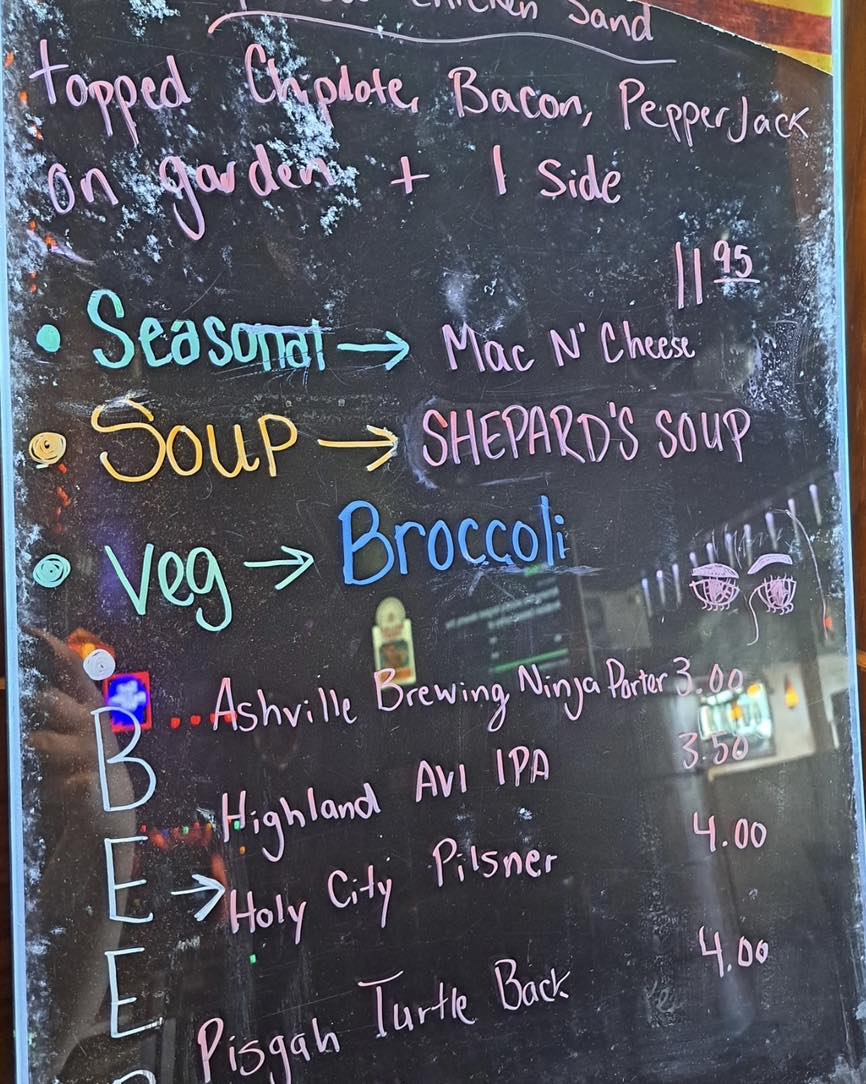 Chicken Sand
topped Chipolote, Bacon, PepperJack
on garden + 1 Side
11 95
• Seasonal → Mac N' Cheese
• Soup → SHEPARD'S SOUP
• Veg → Broccoli
B ... Ashville Brewing Ninja Porter 3.00
Highland AVI IPA 3.50
E → Holy City Pilsner 4.00
E
Pisgah Turtle Back 4.00